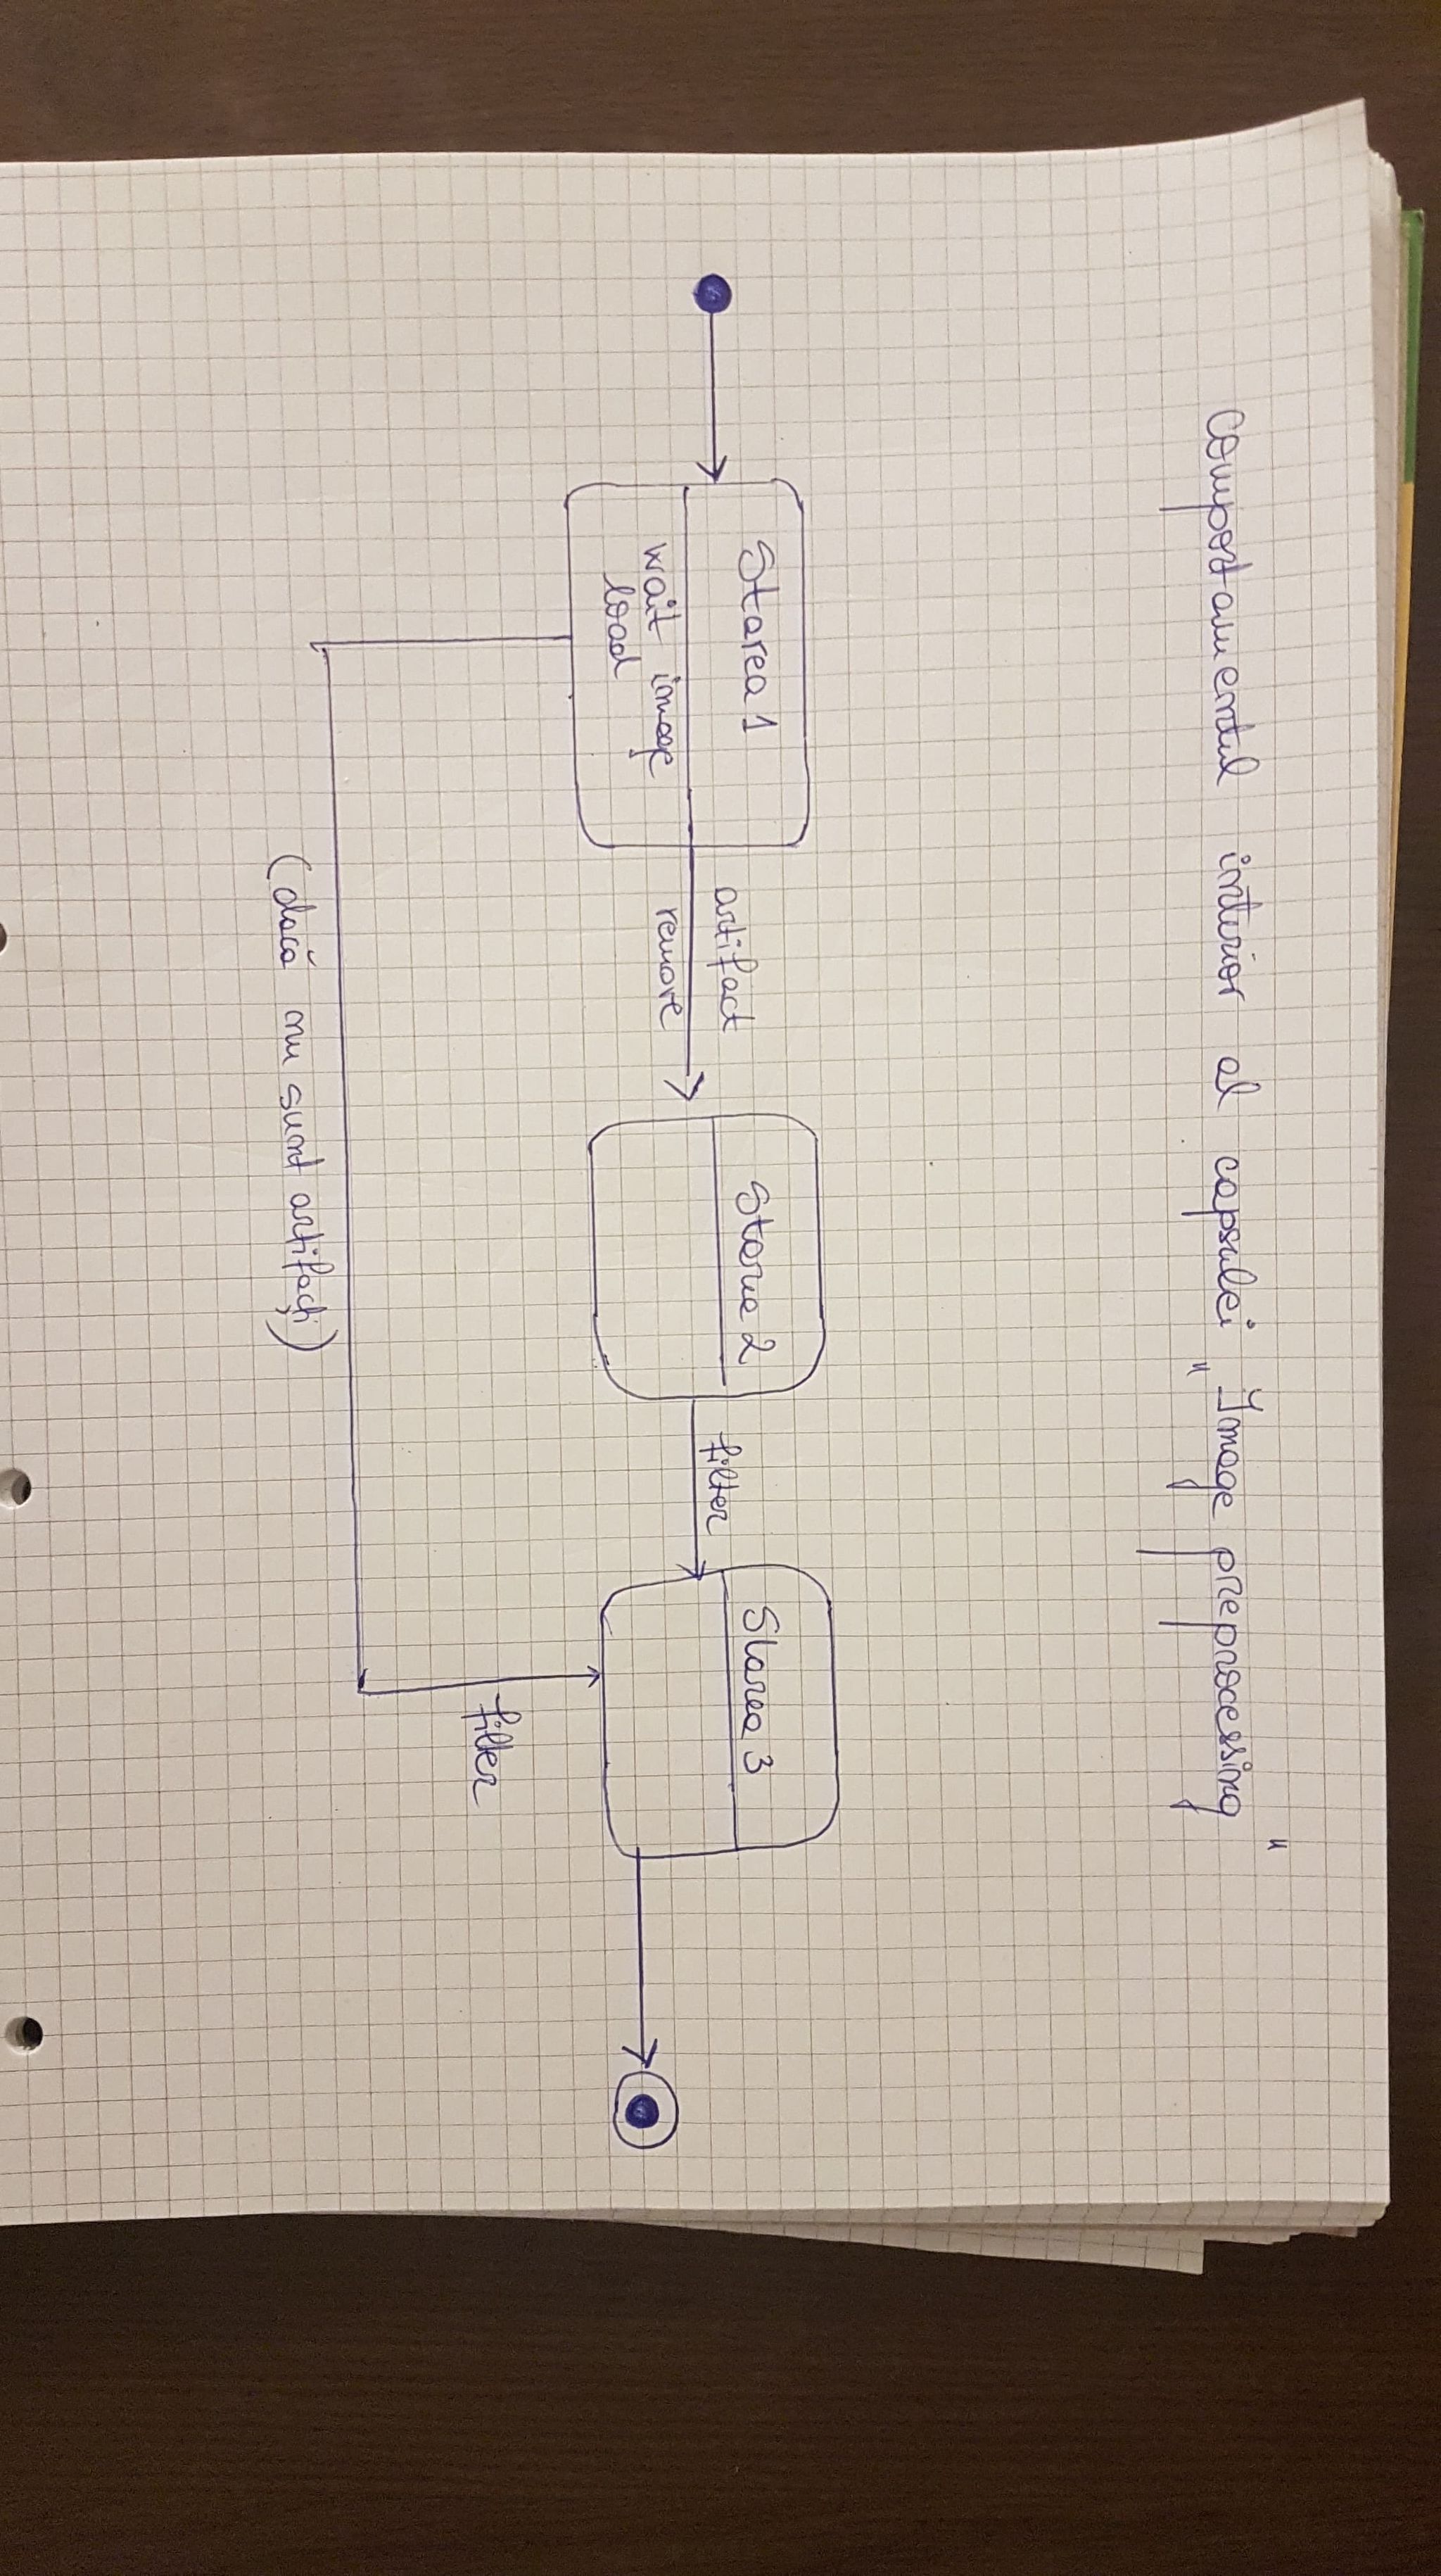 Comportamentul interior al capsulei "Image preprocessing"
Starea 1
wait image
load
artifact
remove
Starea 2
filter
Starea 3
filter
(dacă nu sunt artifacți)